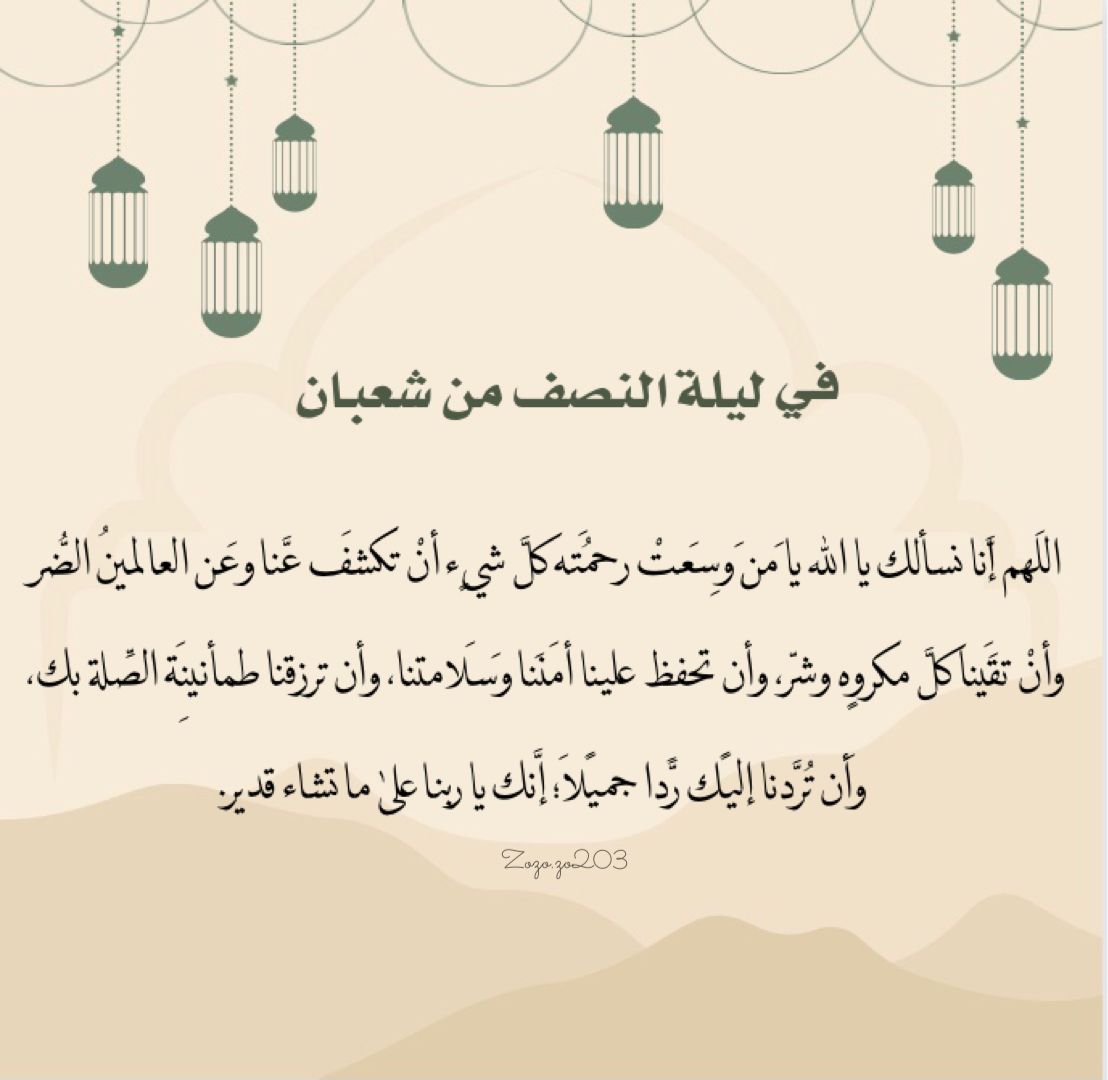 في ليلة النصف من شعبان
اللَهم إَنا نسألك يا الله يا مَن وَسِعَتْ رحمُتَه كلَّ شيٍء أنْ تكشفَ عَّنا وعَن العالمينُ الضُّر
وأنْ تقَينا كلَّ مكروٍه وشرّ، وأن تحفظ علينا أمَنَنا وَسَلَامتنا، وأن ترزقنا طمأنينَِة الصِّلة بك،
وأَن تُرَّدنا إليًك رًَّدا جميًلاَ؛ إنَّك يا ربنا علىٰ ما تشاء قدير.
Zozo.zo203